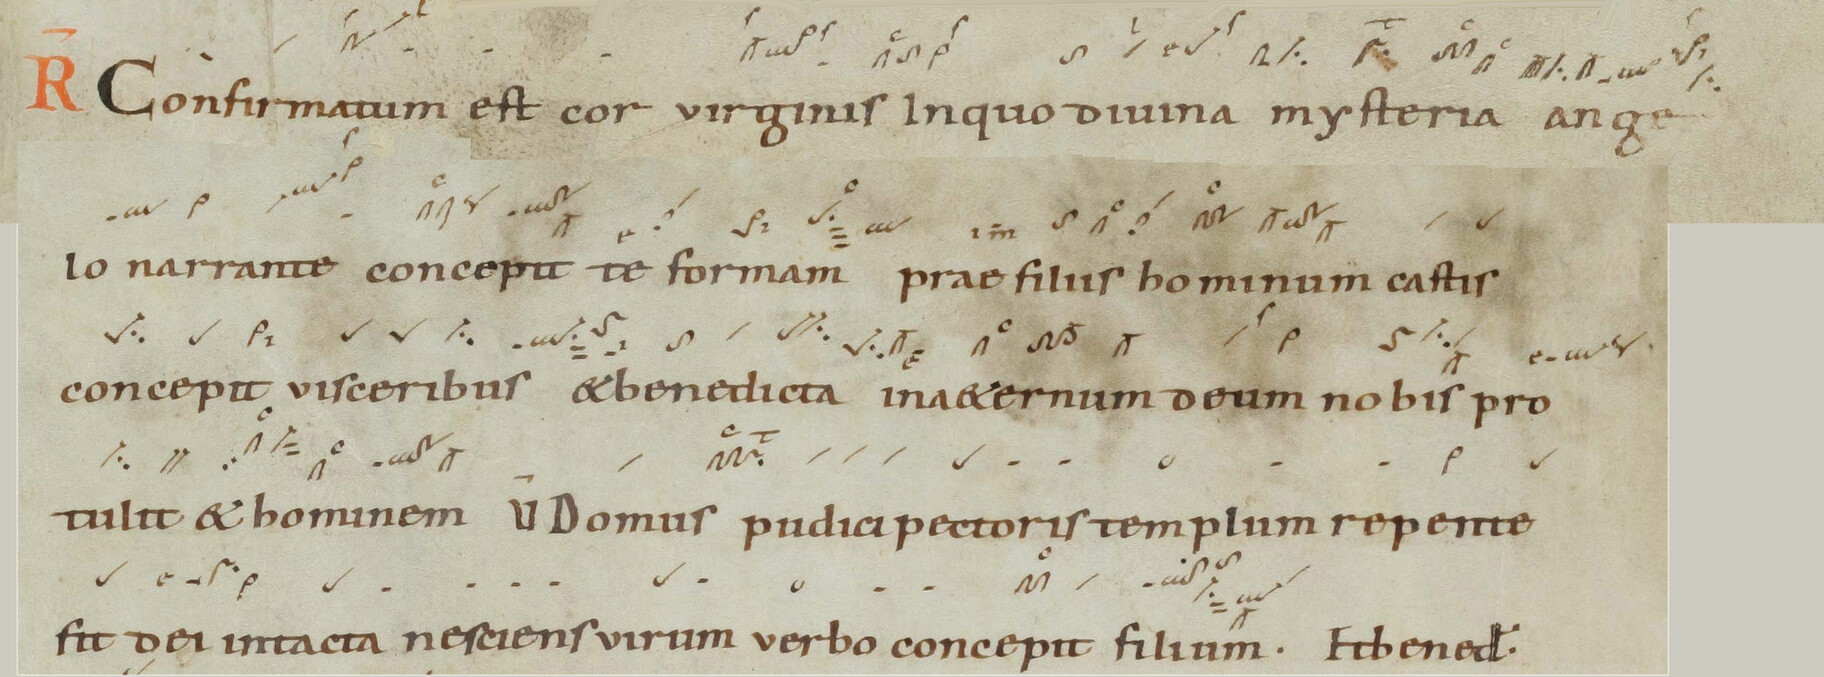 R̄ Confirmatum est cor virginis Inquo diuina mysteria ange
lo narrante concepit te formam prae filius hominum castis
concepit visceribus &benedicta ina&ernum deum nobis pro
tulit & hominem V̄ Domus pudici pectoris templum repente
fit dei intacta nesciens virum verbo concepit filium. Etbened.